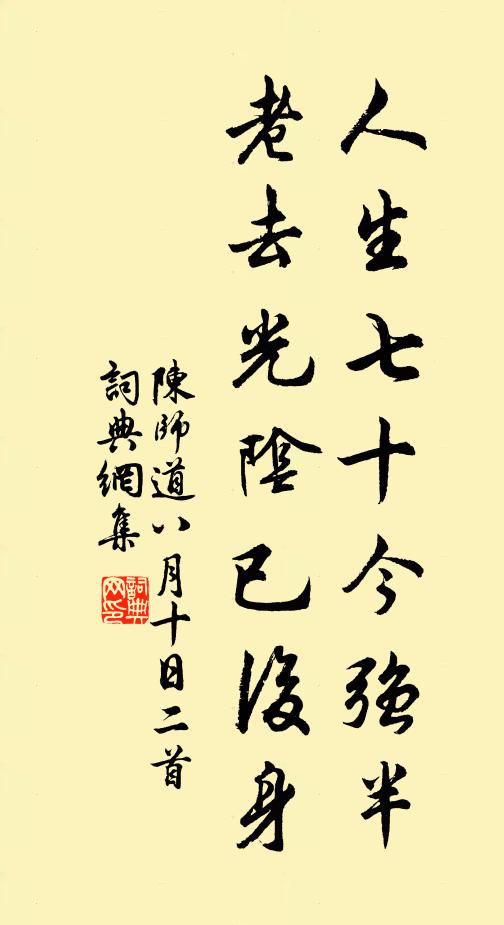 人生七十今強半
老去光陰已後身
陳師道八月十日二首
詞典網集
詞典网印